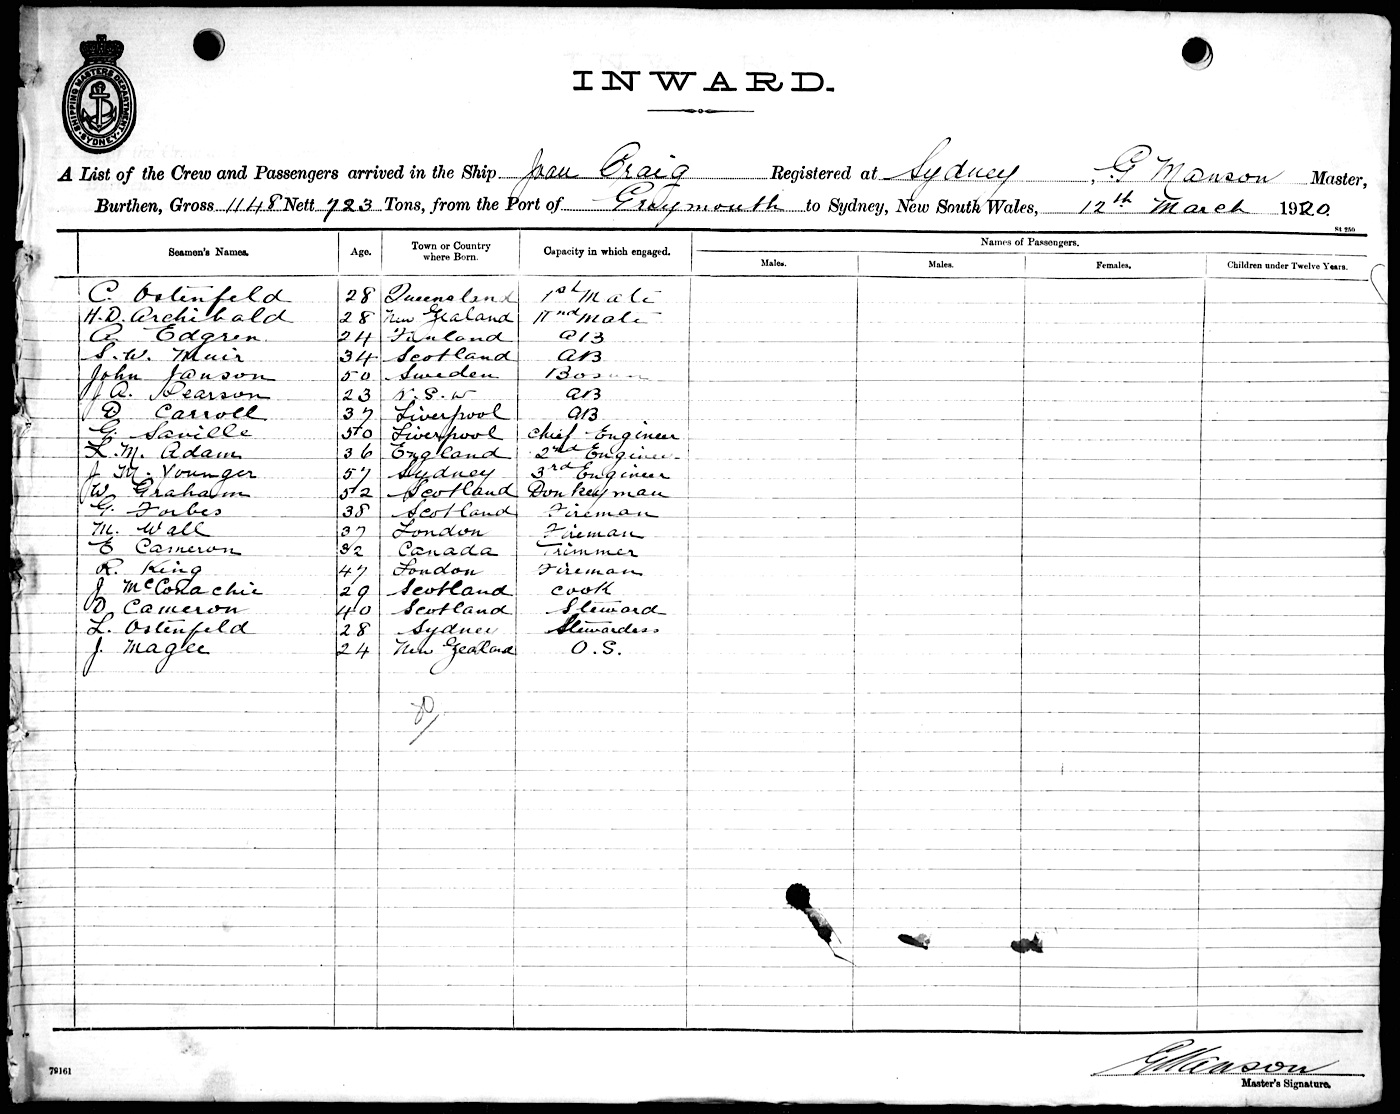 SHIPPING MASTERS DEPARTMENT
SYDNEY
INWARD.
A List of the Crew and Passengers arrived in the Ship Joan Craig Registered at Sydney, G Manson Master,
Burthen, Gross 1148 Nett 723 Tons, from the Port of Greymouth to Sydney, New South Wales, 12th March 1920.
S4 250
Seamen's Names. Age. Town or Country where Born. Capacity in which engaged. Names of Passengers.
Males. Males. Females. Children under Twelve Years.
C. Ostenfeld 28 Queensland 1st Mate
H.D. Archibald 28 New Zealand 11nd Mate
A. Edgren 24 Finland AB
S. W. Muir 34 Scotland AB
John Janson 50 Sweden Bosun
J A. Pearson 23 N.S.W AB
D Carroll 37 Liverpool AB
G. Saville 50 Liverpool Chief Engineer
L. M. Adam 36 England 2nd Engineer
J M. Younger 57 Sydney 3rd Engineer
W Graham 52 Scotland Donkeyman
G. Forbes 38 Scotland Fireman
M. Wall 37 London Fireman
E Cameron 32 Canada Trimmer
R. King 47 London Fireman
J McConachie 29 Scotland Cook
D Cameron 40 Scotland Steward
L. Ostenfeld 28 Sydney Stewardess
J. Magee 24 New Zealand O.S.
GManson
79161
Master's Signature.